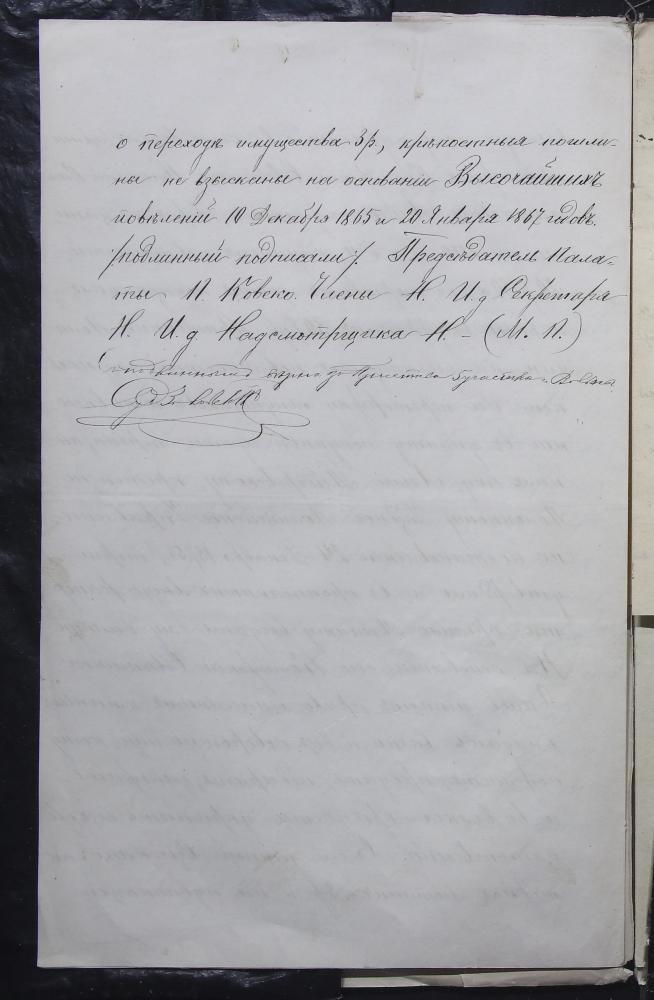 о переходѣ имущества 3 р., крѣпостныя пошли-
ны не взысканы на основаніи Высочайшихъ
повѣленій 10 Декабря 1865 и 20 Января 1867 годовъ.
/подлинный подписали/. Предсѣдатель Пала-
ты П. Ковеко. Члены Н. И. д. Секретаря
Н. И. д. Надсмотрщика Н. – (М. П.)
Съ подлиннымъ вѣрно